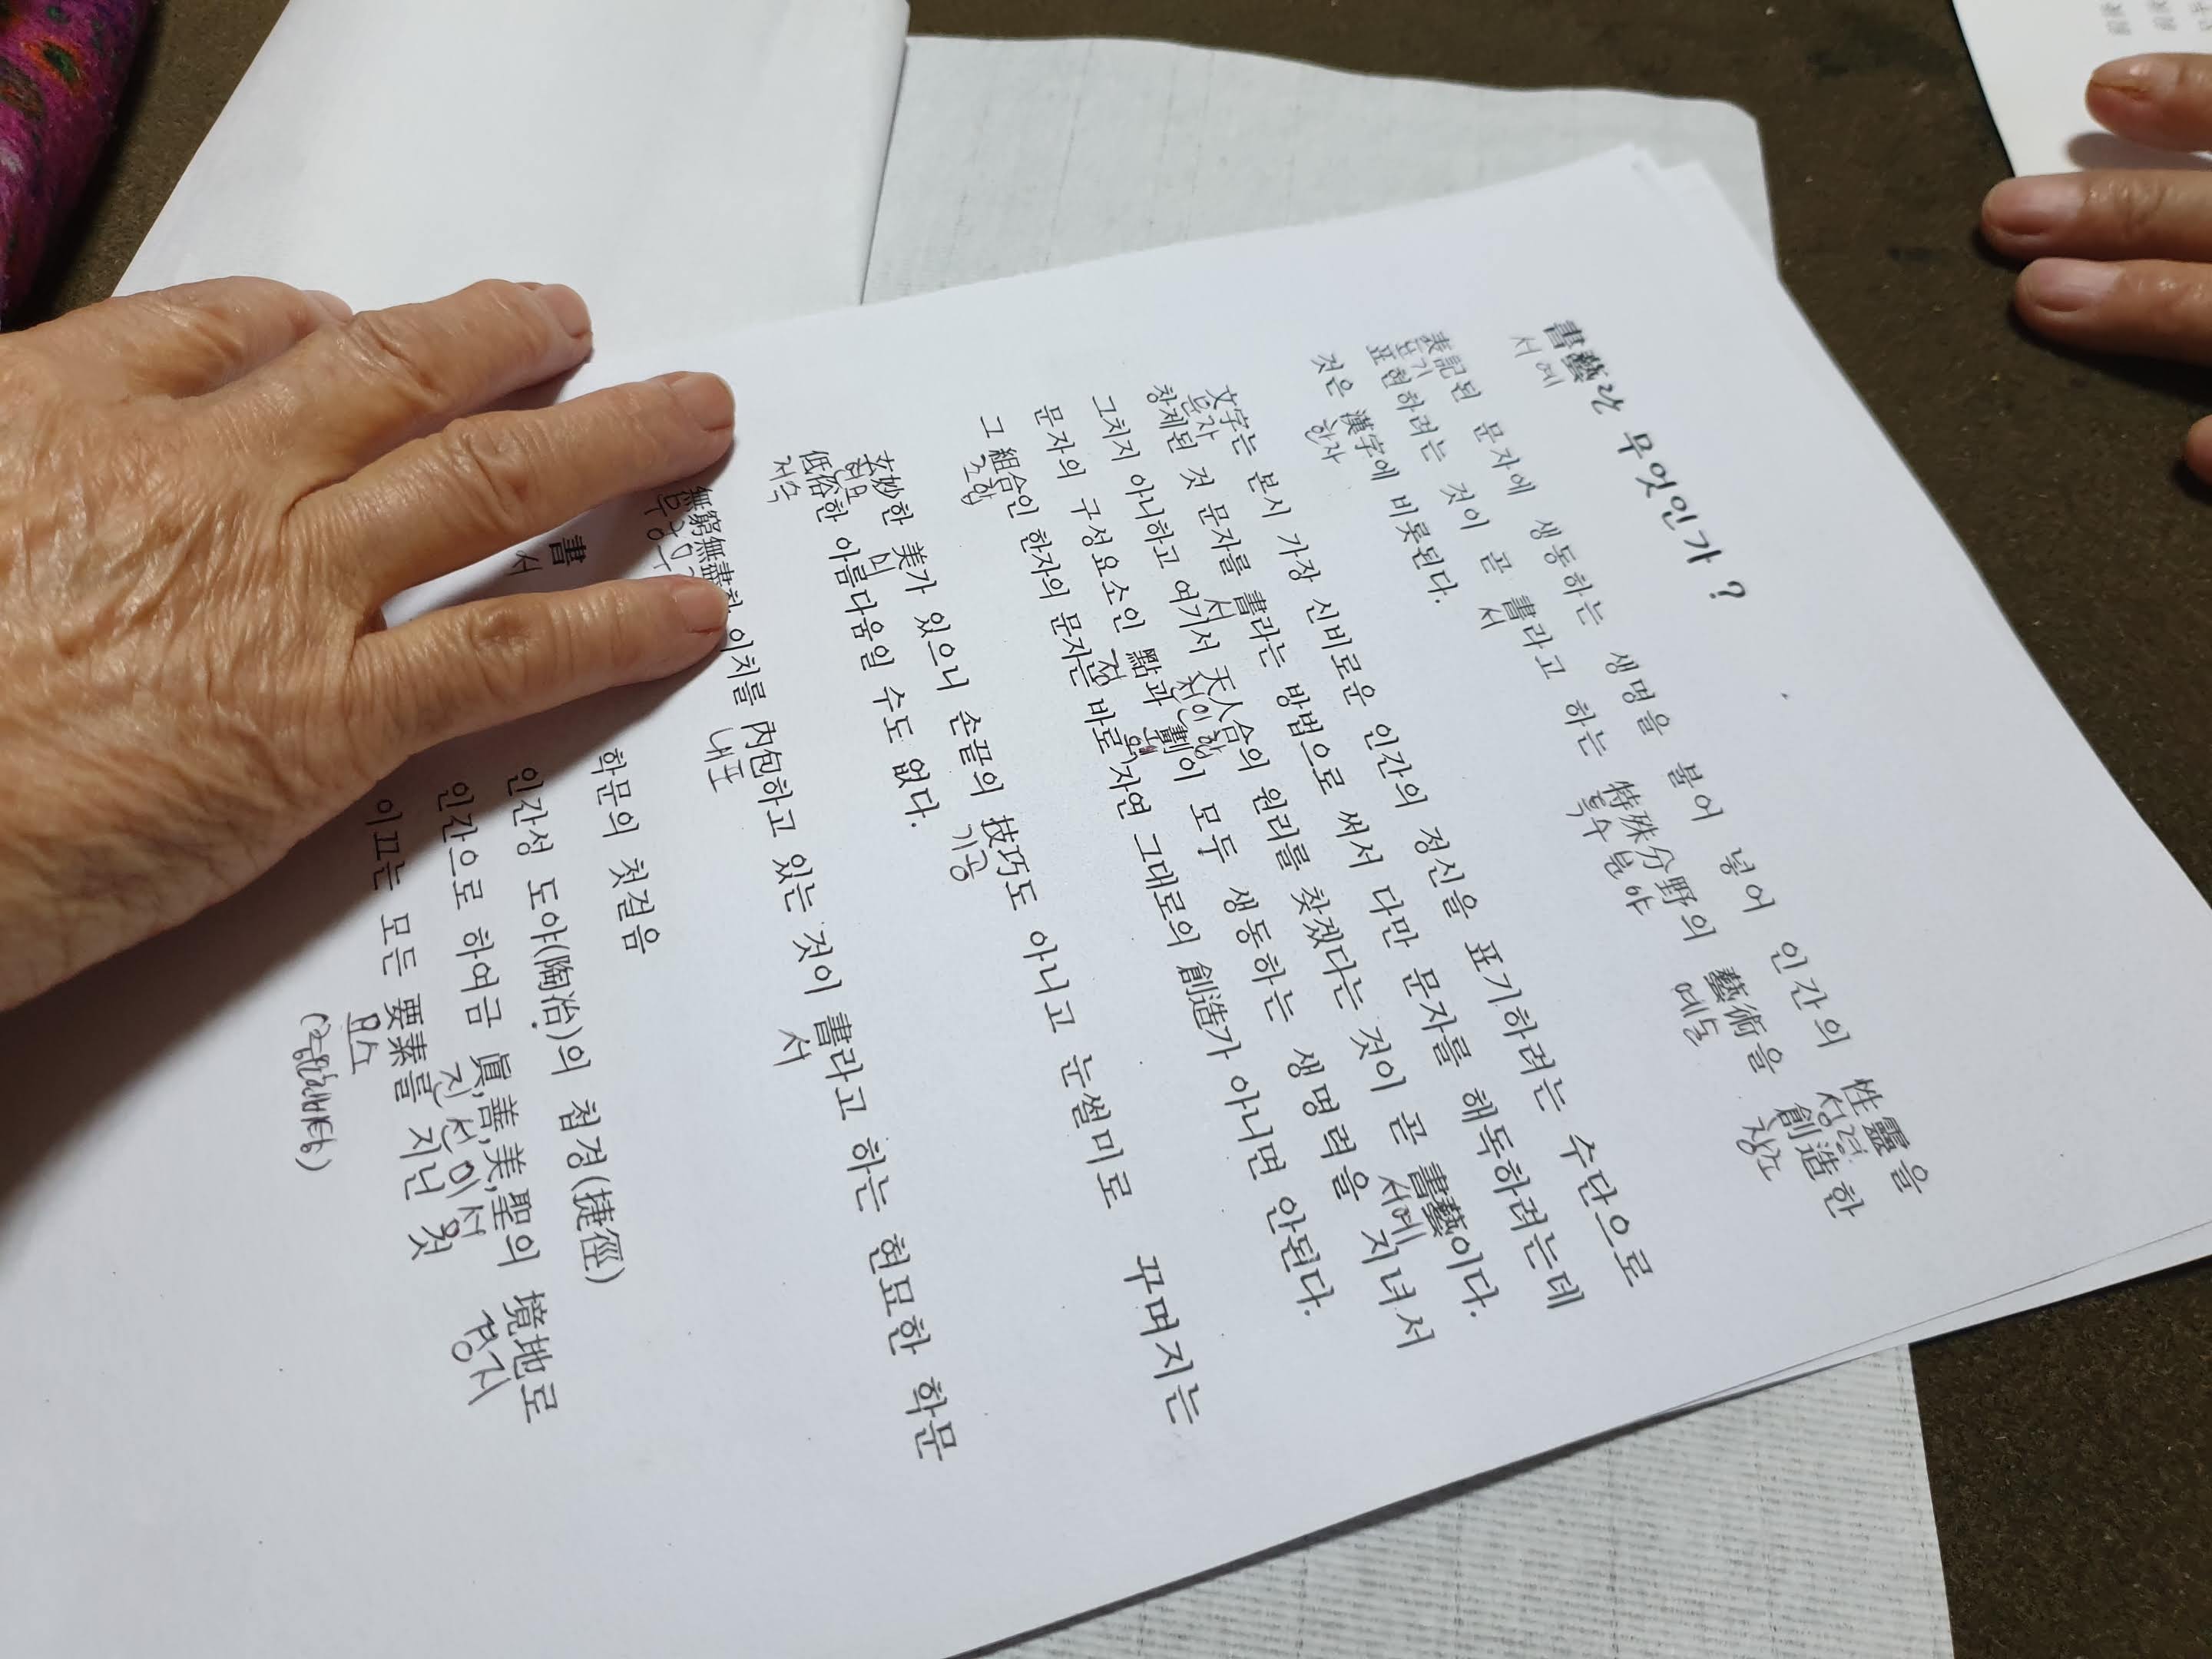 書藝란 무엇인가?
서예
表記된 문자에 생동하는 생명을 불어 넣어 인간의 性靈을
표기 성령
표현하려는 것이 곧 書라고 하는 特殊分野의 藝術을 創造한
서 특수분야 예술 창조
것은 漢字에 비롯된다.
한자
文字는 본시 가장 신비로운 인간의 정신을 표기하려는 수단으로
문자
창제된 것 문자를 書라는 방법으로 써서 다만 문자를 해독하려는데
서
그치지 아니하고 여기서 天人合의 원리를 찾겠다는 것이 곧 書藝이다.
천인합 서예
문자의 구성요소인 點과 劃이 모두 생동하는 생명력을 지녀서
점 획
그 組合인 한자의 문자는 바로 자연 그대로의 創造가 아니면 안된다.
조합
玄妙한 美가 있으니 손끝의 技巧도 아니고 눈썰미로 꾸며지는
현묘 미 기공
低俗한 아름다움일 수도 없다.
저속
無窮無盡한 이치를 內包하고 있는 것이 書라고 하는 현묘한 학문
내포 서
書
서
학문의 첫걸음
인간성 도야(陶冶)의 첩경(捷徑)
인간으로 하여금 眞,善,美,聖의 境地로
진 선 미 성 경지
이끄는 모든 要素를 지닌 것
요소